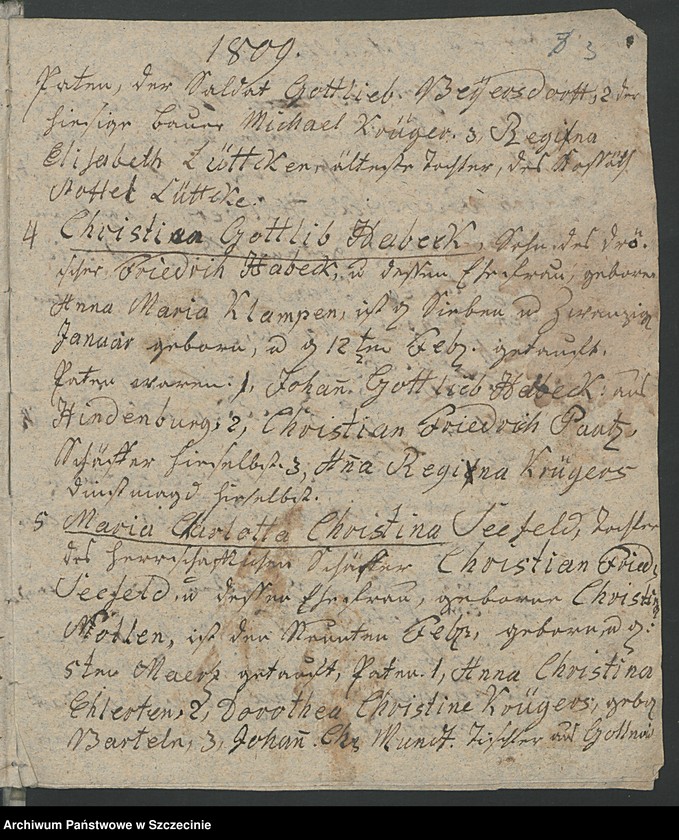 1809.
8 3
Paten, der Soldat Gottlieb Beyersdorff, 2 der
hiesige Bauer Michael Krüger. 3, Regina
Elisabeth Lüttcken, älteste Tochter, des Kossäth
Lüttcke.
4 Christian Gottlieb Habeck, Sohn des Drö-
scher Friedrich Habeck, u dessen Ehefrau, geborne
Anna Maria Klampen, ist d Sieben u Zwanzig
Januar geborn, u d 12ten Feb. getauft.
Paten waren. 1, Johann Gottlieb Habeck: aus
Hindenburg; 2, Christian Friedrich Paatz,
Schäffer hieselbst. 3, Anna Regina Krügers
Dinstmagd hieselbst.
5 Maria Charlotta Christina Seefeld, Tochter
des herrschaftlichen Schäffer Christian Fried.
Seefeld u dessen Ehefrau, geborne Christin
Nollen, ist den Neunten Feb, geborn, u d:
5ten Maerz getauft, Paten. 1, Anna Christina
Ehlerten, 2, Dorothea Christine Krügers, geb.
Barteln, 3, Johann Chr Mundt. Tischler aus Gollnow
Archiwum Państwowe w Szczecinie